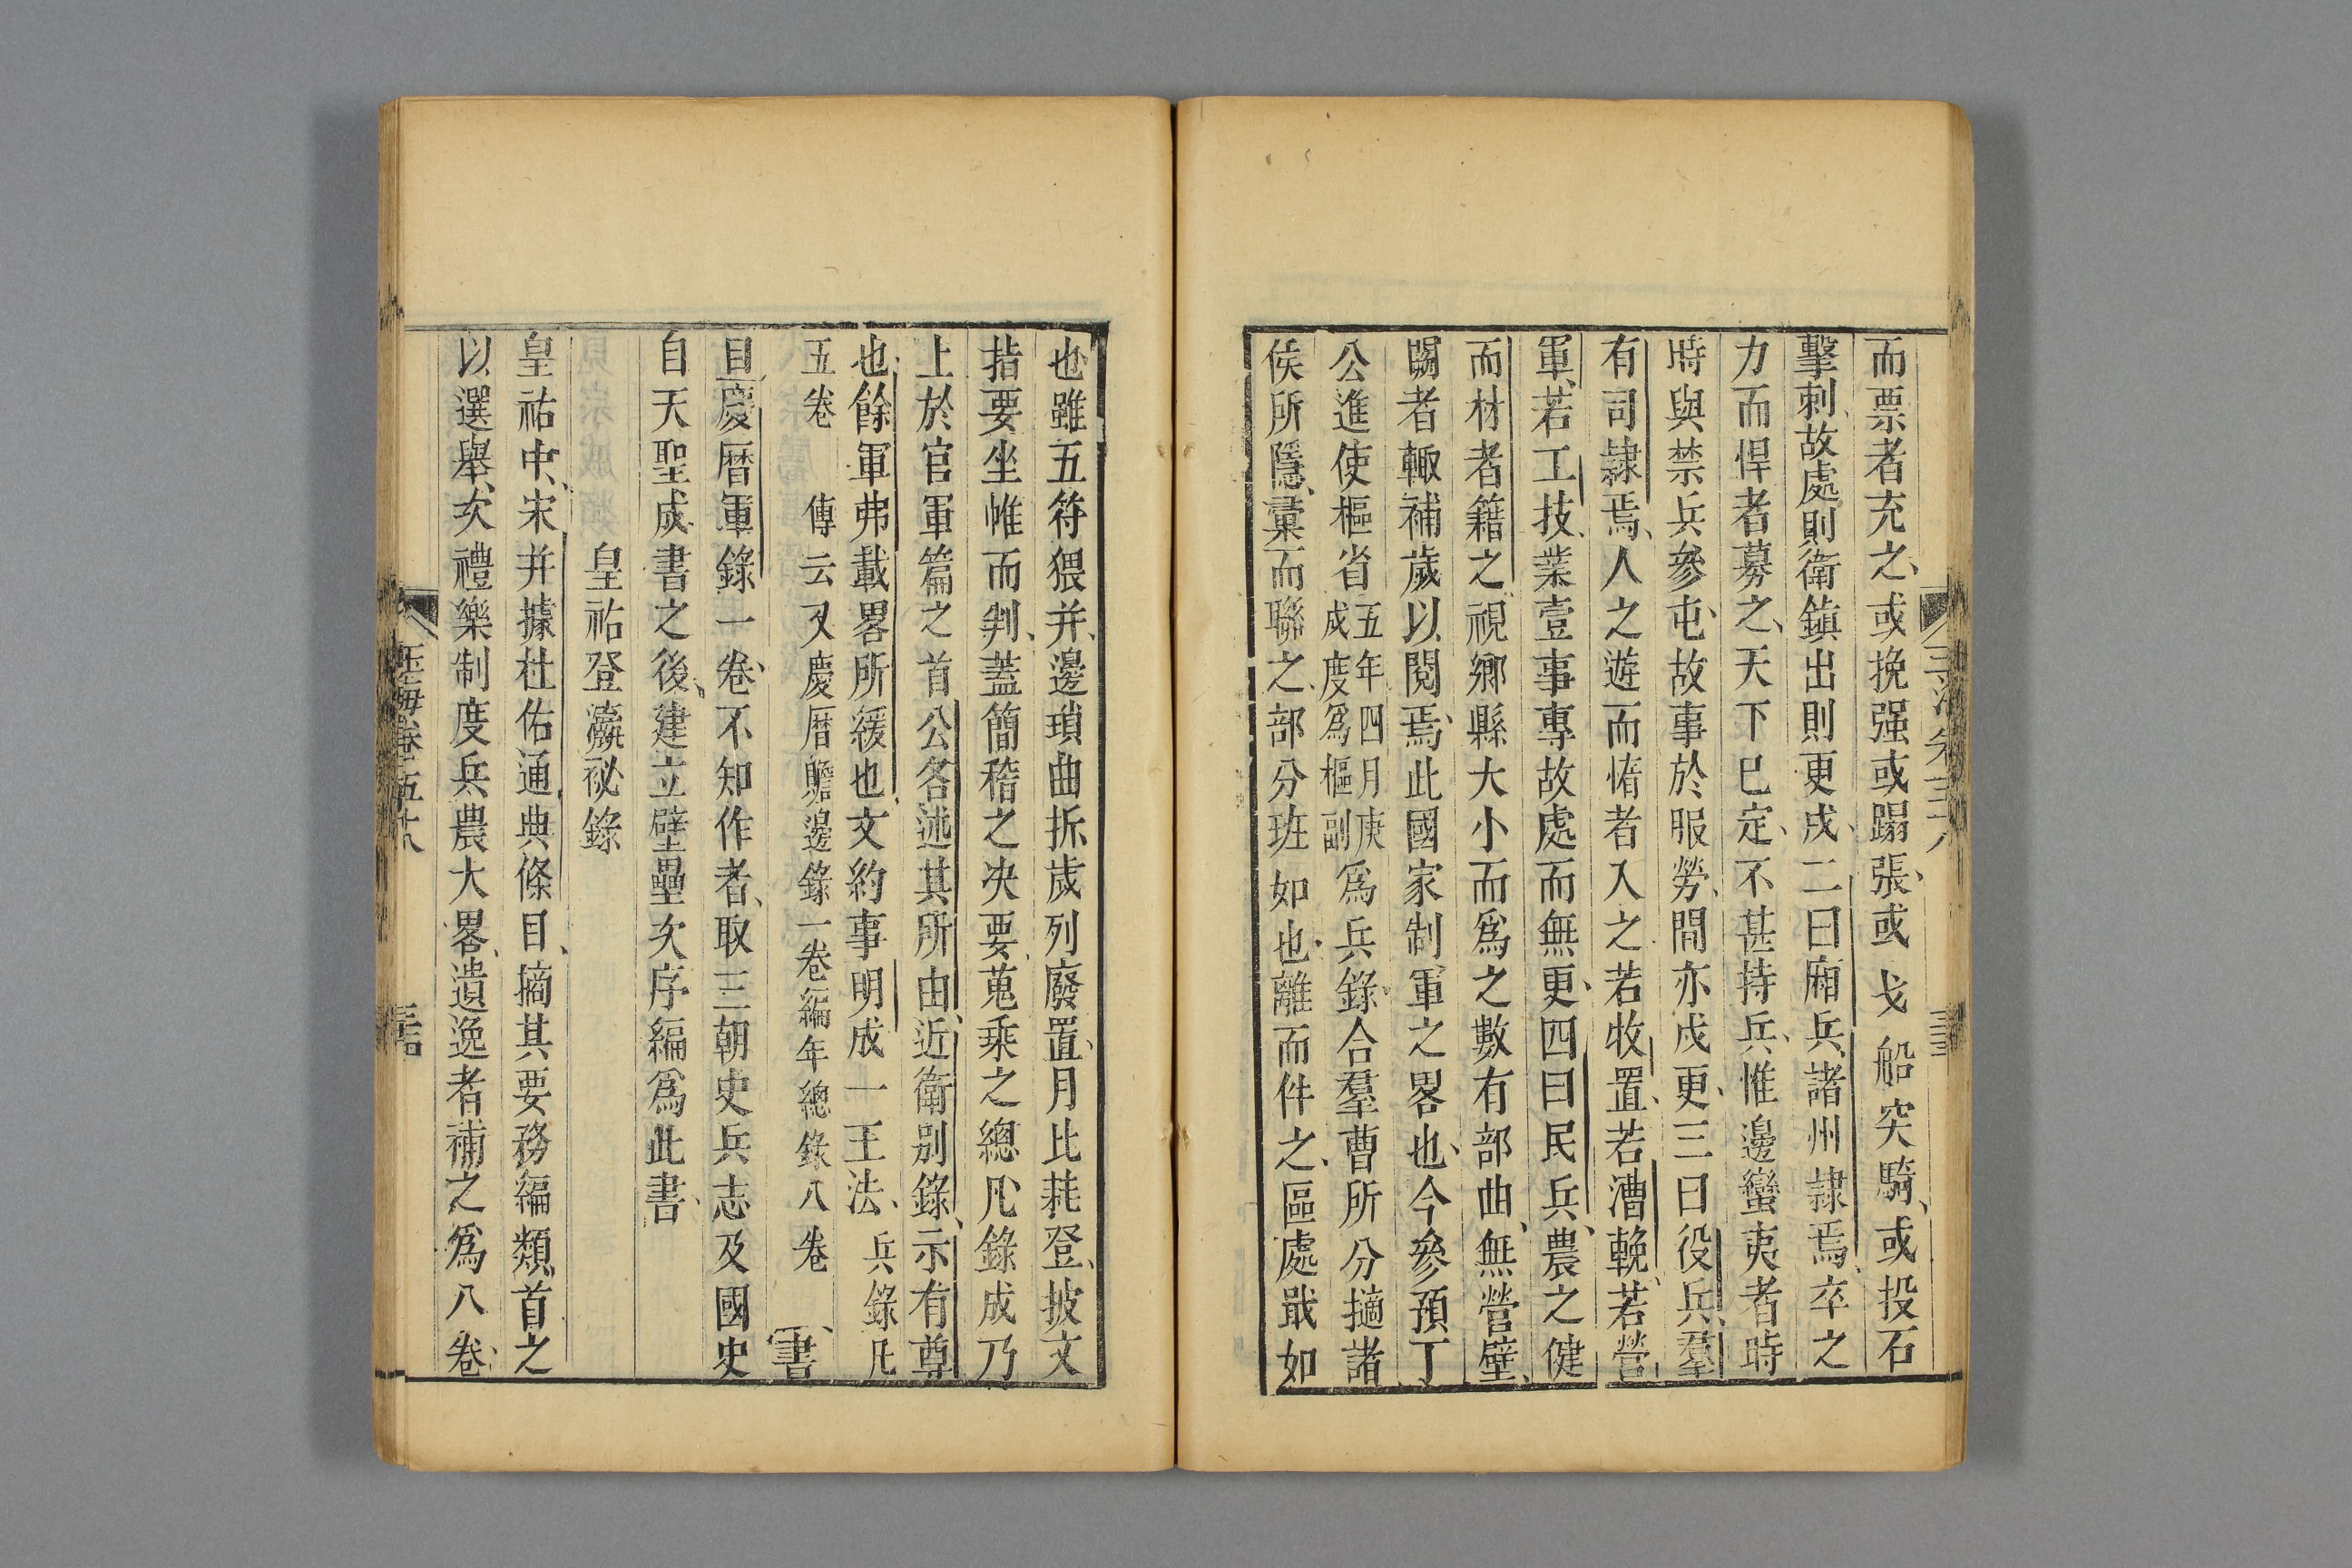 而票者充之或挽强或蹋張或戈船突騎或投石
擊刺故處則衛鎮出則更戍二曰廂兵諸州隷焉卒之
力而悍者募之天下已定不甚持兵惟邊蠻夷者時
時與禁兵參屯故事於服勞間亦戍更三曰役兵羣
有司隷焉人之遊而惰者入之若收置若漕輓若營
軍若工技業壹事專故處而無更四曰民兵農之健
而材者籍之視鄉縣大小而爲之數有部曲無營壁
闕者輙補歲以閱焉此國家制軍之畧也今參預丁
公進使樞省五年四月庚戍度爲樞副爲兵錄合羣曹所分擿諸
侯所隱彙而聯之部分班如也離而件之區處戢如
也雖五符猥并邊瑣曲折歲列廢置月比耗登披文
指要坐帷而判蓋簡稽之决要蒐乘之總凡錄成乃
上於官軍篇之首公各述其所由近衛別錄示有尊
也餘軍弗載畧所緩也文約事明成一王法兵錄凡
五卷 傳云又慶曆贍邊錄一卷編年總錄八卷 書
目慶曆軍錄一卷不知作者取三朝史兵志及國史
自天聖成書之後建立壁壘次序編爲此書
皇祐登瀛祕錄
皇祐中宋并據杜佑通典條目摘其要務編類首之
以選舉次禮樂制度兵農大畧遺逸者補之爲八卷
玉海卷五十八